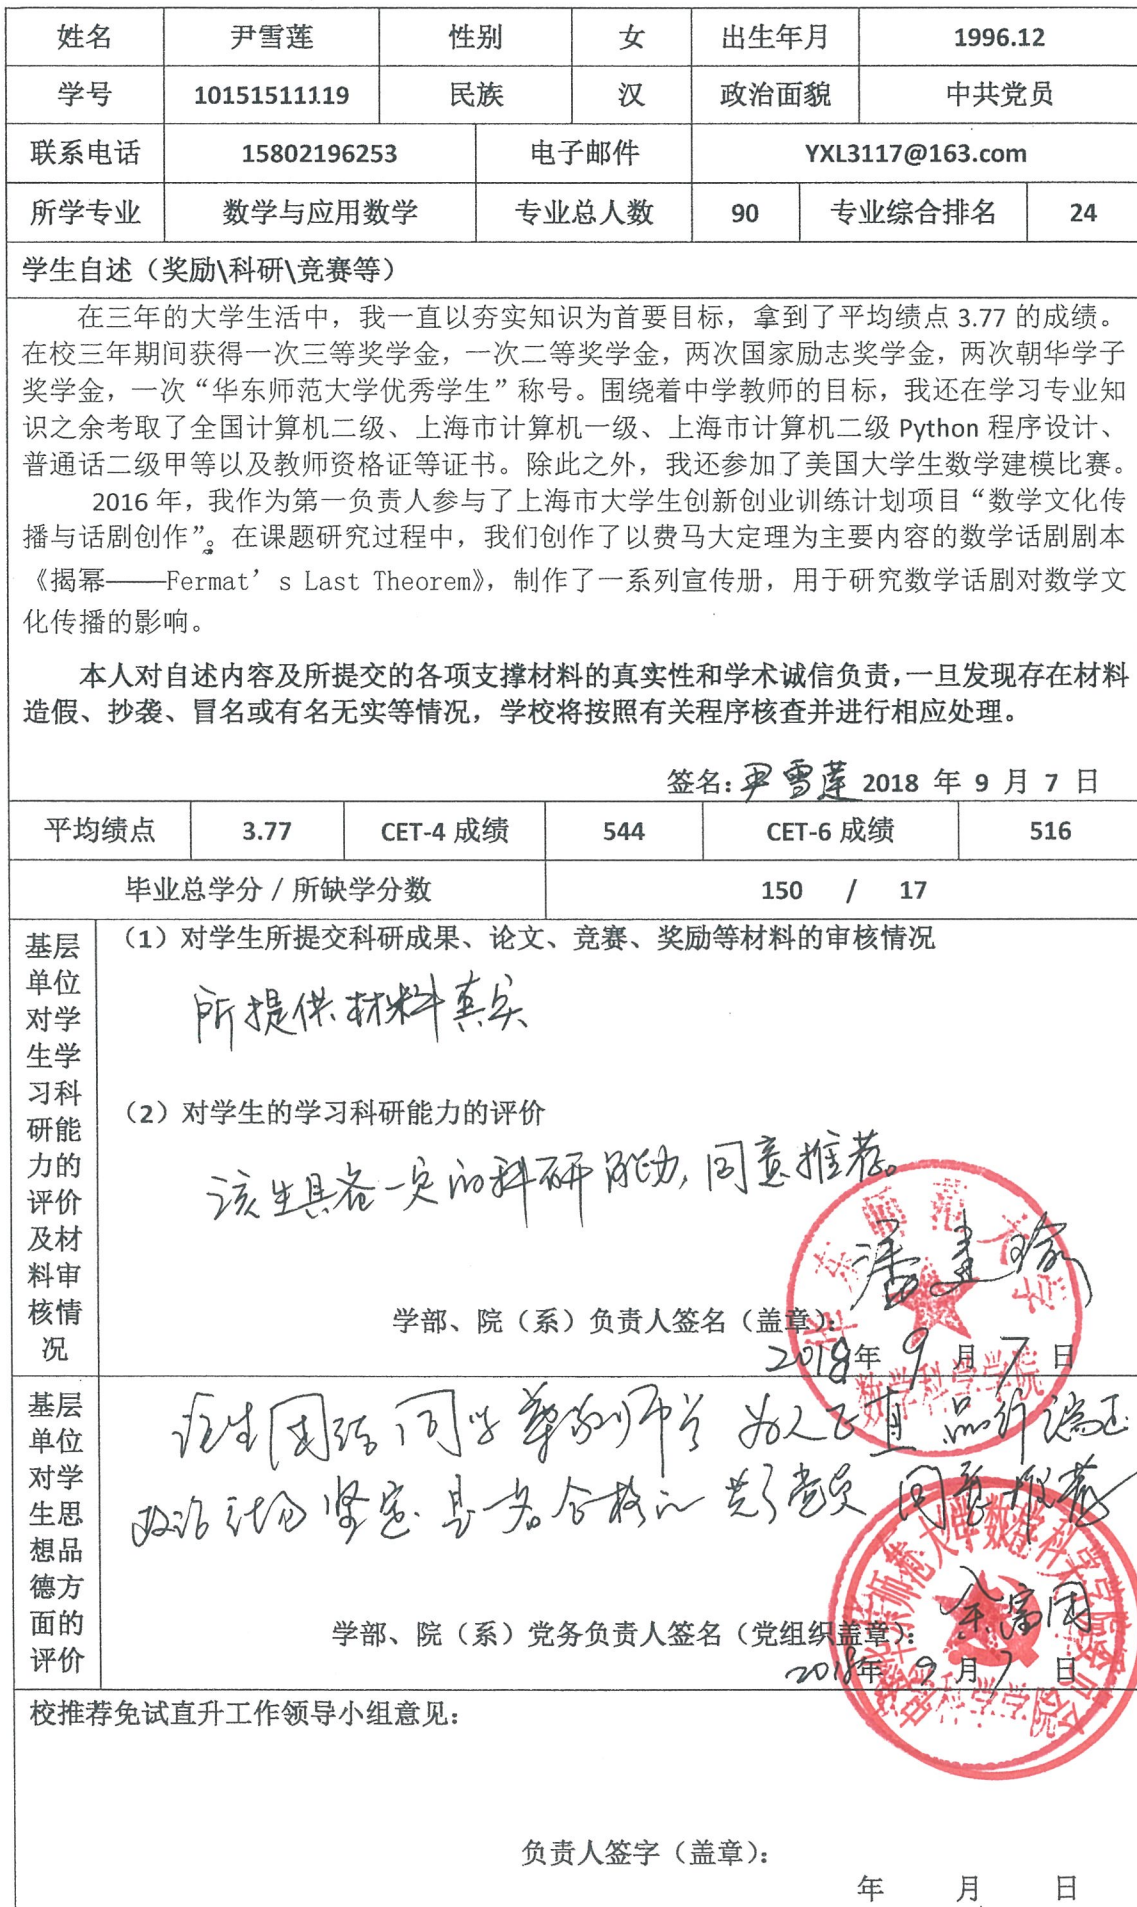 姓名 尹雪莲 性别 女 出生年月 1996.12
学号 10151511119 民族 汉 政治面貌 中共党员
联系电话 15802196253 电子邮件 YXL3117@163.com
所学专业 数学与应用数学 专业总人数 90 专业综合排名 24
学生自述（奖励\科研\竞赛等）
在三年的大学生活中，我一直以夯实知识为首要目标，拿到了平均绩点 3.77 的成绩。
在校三年期间获得一次三等奖学金，一次二等奖学金，两次国家励志奖学金，两次朝华学子
奖学金，一次“华东师范大学优秀学生”称号。围绕着中学教师的目标，我还在学习专业知
识之余考取了全国计算机二级、上海市计算机一级、上海市计算机二级 Python 程序设计、
普通话二级甲等以及教师资格证等证书。除此之外，我还参加了美国大学生数学建模比赛。
2016 年，我作为第一负责人参与了上海市大学生创新创业训练计划项目“数学文化传
播与话剧创作”。在课题研究过程中，我们创作了以费马大定理为主要内容的数学话剧剧本
《揭幂——Fermat’s Last Theorem》，制作了一系列宣传册，用于研究数学话剧对数学文
化传播的影响。
本人对自述内容及所提交的各项支撑材料的真实性和学术诚信负责，一旦发现存在材料
造假、抄袭、冒名或有名无实等情况，学校将按照有关程序核查并进行相应处理。
签名：尹雪莲 2018 年 9 月 7 日
平均绩点 3.77 CET-4 成绩 544 CET-6 成绩 516
毕业总学分 / 所缺学分数 150 / 17
基层
单位
对学
生学
习科
研能
力的
评价
及材
料审
核情
况
（1）对学生所提交科研成果、论文、竞赛、奖励等材料的审核情况
所提供材料真实
（2）对学生的学习科研能力的评价
该生具备一定的科研能力，同意推荐。
华东师范大学
潘建瑜
学部、院（系）负责人签名（盖章）：
2018年 9 月 7 日
数学科学学院
基层
单位
对学
生思
想品
德方
面的
评价
该生团结同学 尊敬师长 为人正直 品行端正
政治立场坚定 是一名合格的 党员 同意推荐
学部、院（系）党务负责人签名（党组织盖章）：
2018年 9 月 7 日
数学科学学院
校推荐免试直升工作领导小组意见：
负责人签字（盖章）：
年 月 日